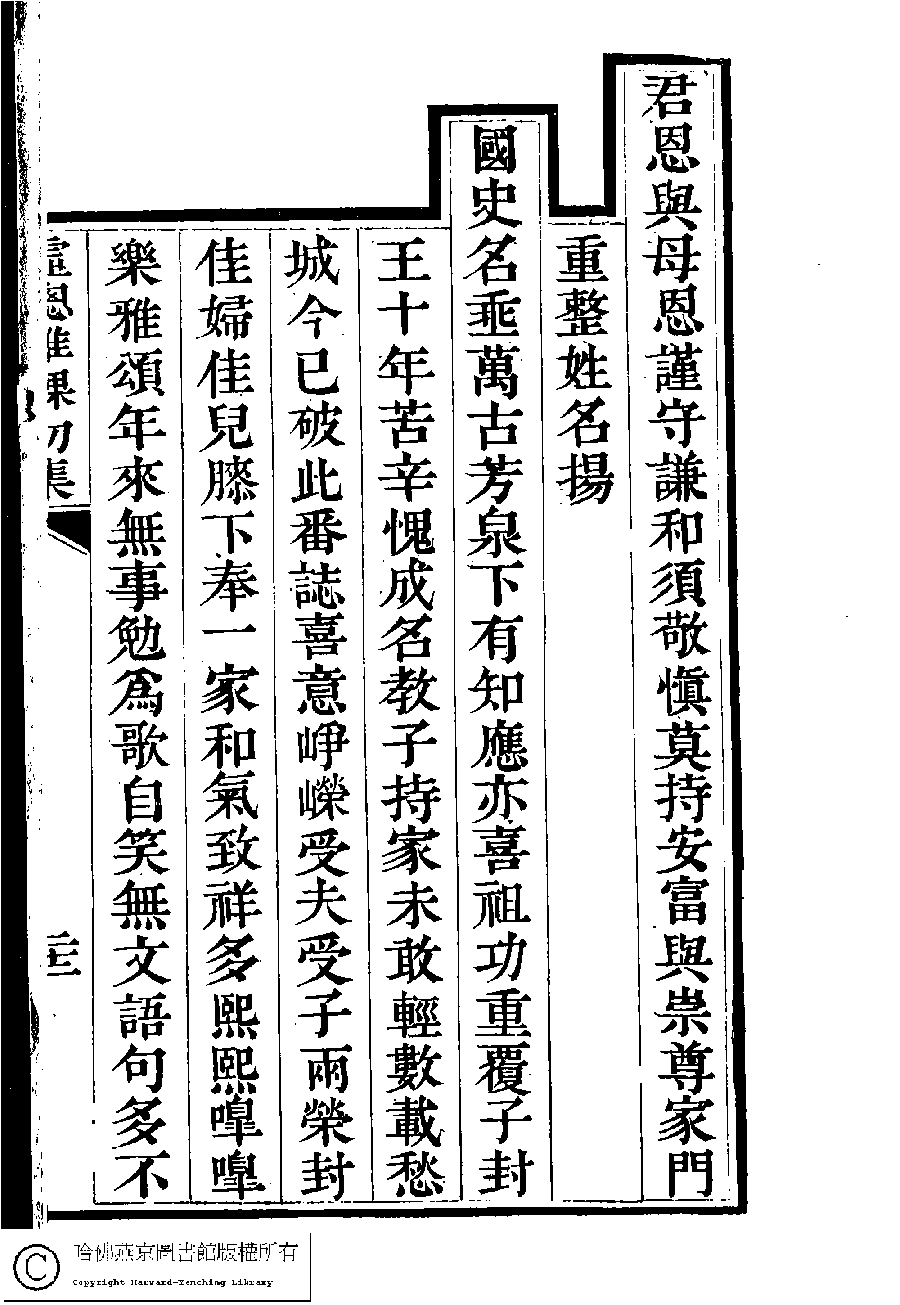 君恩與母恩謹守謙和須敬慎莫持安富與崇尊家門
重整姓名揚
國史名垂萬古芳泉下有知應亦喜祖功重覆子封
王十年苦辛愧成名教子持家未敢輕數載愁
城今已破此番誌喜意崢嶸受夫受子兩榮封
佳婦佳兒膝下奉一家和氣致祥多熙熙嘷嘷
樂雅頌年來無事勉為歌自笑無文語句多不
哈佛燕京圖書館版權所有
Copyright Harvard-Yenching Library